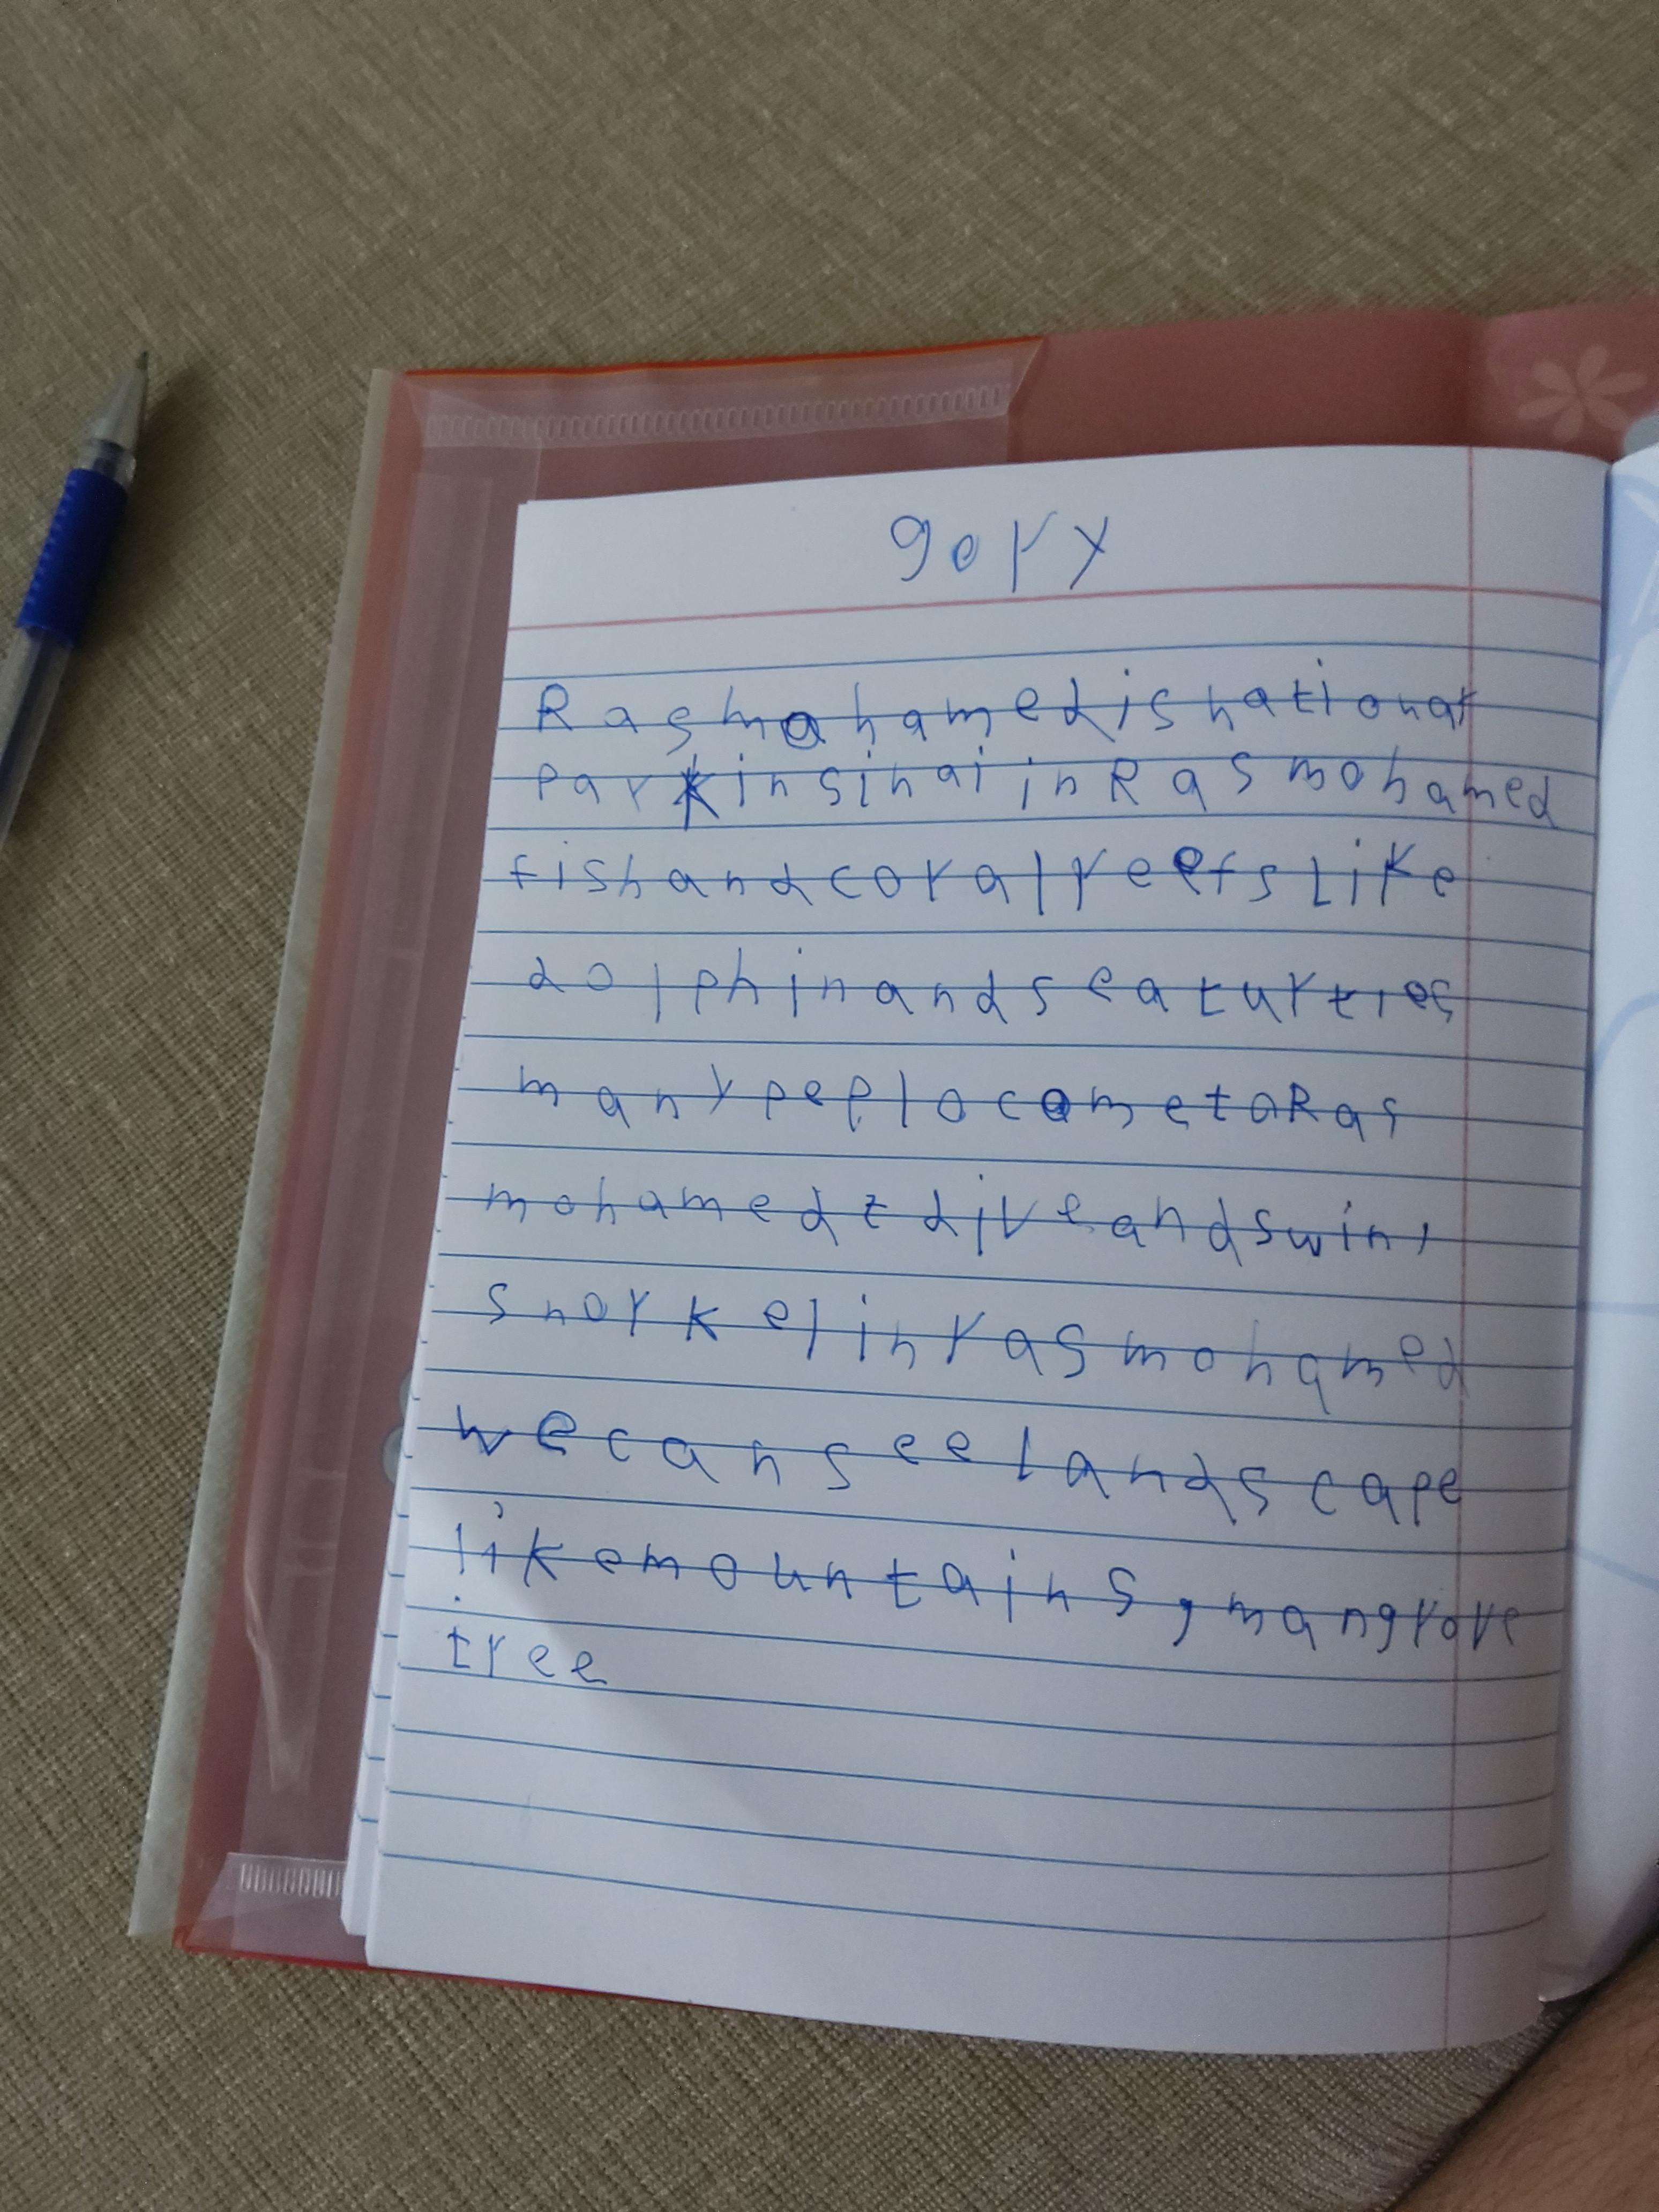 gory
Ras mohamed is national
park in sinai in Ras mohamed
fish and coral reefs like
dolphin and sea turtles
many peplo come to Ras
mohamed t dive and swin,
snorkel in ras mohamed
we can see landscape
like mountains, mangrove
tree